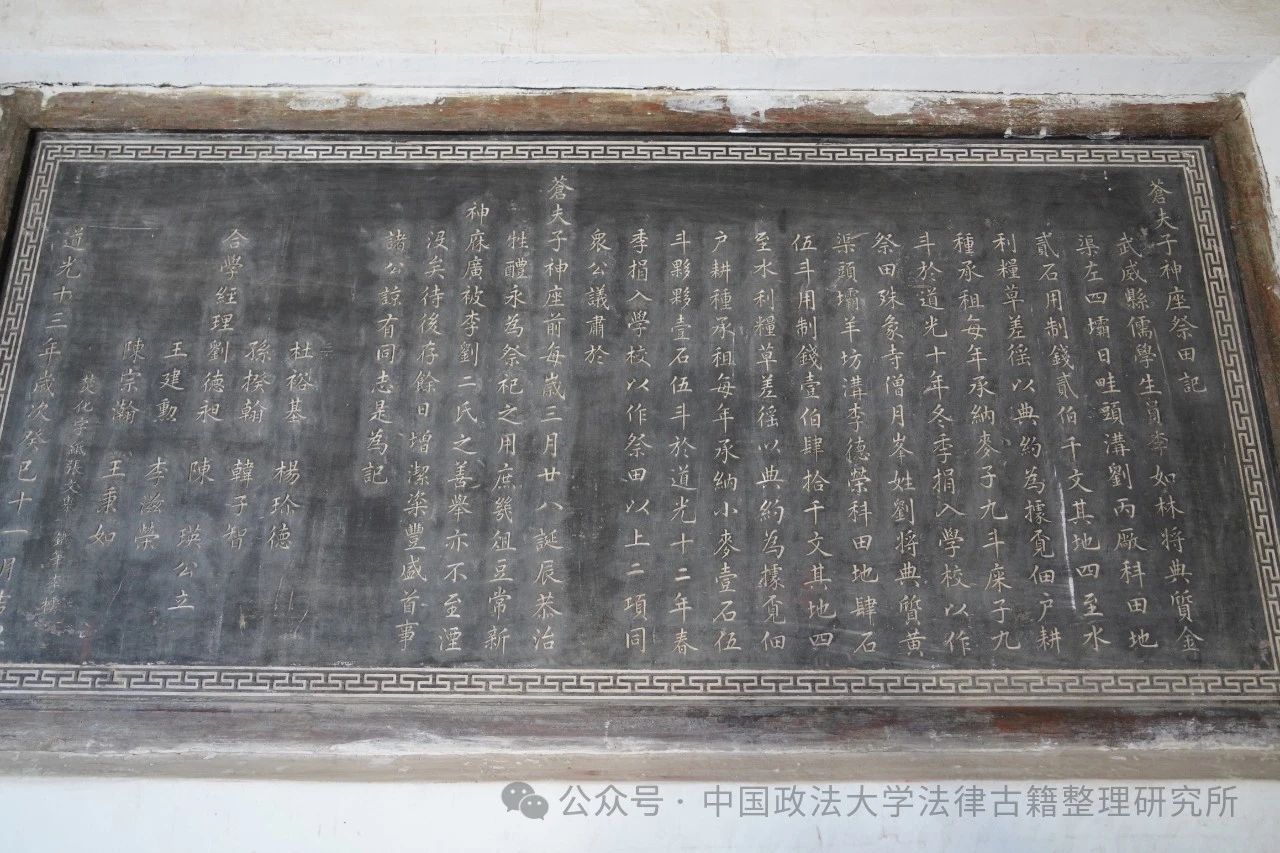 蒼夫子神座祭田記
武威縣儒學生員李如林将典質金
渠左四壩日畦頭溝劉丙厫科田地
貳石用制錢貳伯千文其地四至水
利糧草差徭以典約為據覔佃户耕
種承租每年承納麥子九斗床子九
斗於道光十年冬季捐入學校以作
祭田殊象寺僧月岑姓劉将典質黄
渠頭壩羊坊溝李德榮科田地肆石
伍斗用制錢壹伯肆拾千文其地四
至水利糧草差徭以典約為據覔佃
户耕種承租每年承納小麥壹石伍
斗夥夥壹石伍斗於道光十二年春
季捐入學校以作祭田以上二項同
衆公議肅於
蒼夫子神座前每歲三月廿八誕辰恭治
牲醴永為祭祀之用庶幾俎豆常新
神庥廣被李劉二氏之善舉亦不至湮
没矣待後存餘日增潔粢豐盛首事
諸公諒有同志是為記
杜裕基 楊珍德
孫揆翰 韓子智
合學經理劉德昶 陳瑛公立
王建勳 李滋榮
陳宗瀚 王秉如
焚化字紙張文
道光十三年歲次癸巳十一月